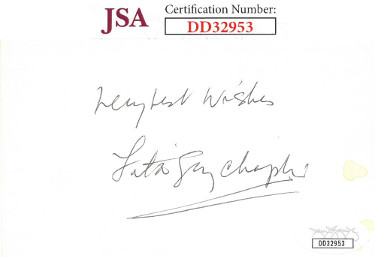 JSA
Certification Number:
DD32953
Very best Wishes
Lita Grey Chaplin
DD32953